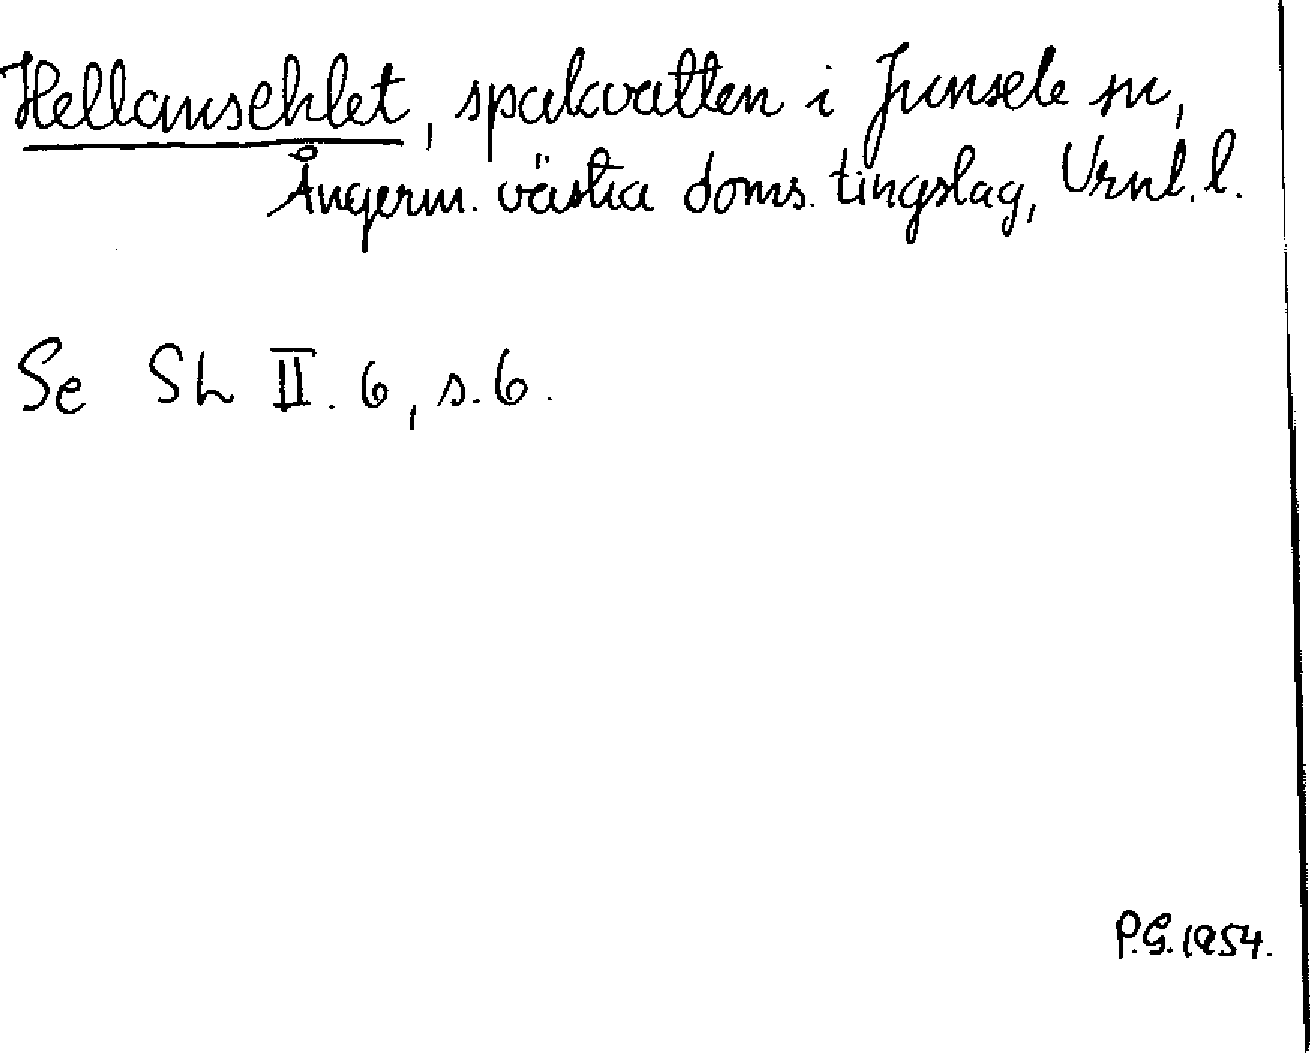 Hellanselet, spakvatten i Junsele sn,
Ångerm. västra doms. tingslag, Vrnl. l.
Se SL II. 6, s. 6.
P.G. 1954.